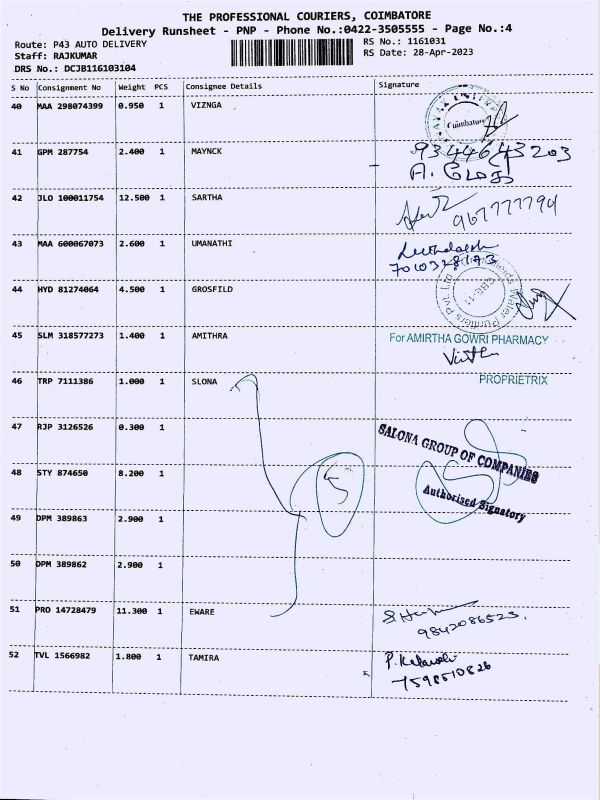 THE PROFESSIONAL COURIERS, COIMBATORE
Delivery Runsheet - PNP - Phone No.:0422-3505555 - Page No.:4
Route: P43 AUTO DELIVERY
RS No.: 1161031
Staff: RAJKUMAR
RS Date: 28-Apr-2023
DRS No.: DCJB116103104
S No Consignment No Weight PCS Consignee Details Signature
40 MAA 298074399 0.950 1 VIZNGA
Coimbatore
41 GPM 287754 2.400 1 MAYNCK
9344643203
42 JLO 100011754 12.500 1 SARTHA
967777794
43 MAA 600067073 2.600 1 UMANATHI
7010328193
44 HYD 81274064 4.500 1 GROSFILD
CBE-11
45 SLM 318577273 1.400 1 AMITHRA
For AMIRTHA GOWRI PHARMACY
46 TRP 7111386 1.000 1 SLONA
PROPRIETRIX
47 RJP 3126526 0.300 1
SALONA GROUP OF COMPANIES
48 STY 874650 8.200 1
Authorised Signatory
49 DPM 389863 2.900 1
50 DPM 389862 2.900 1
51 PRO 14728479 11.300 1 EWARE
9842086523
52 TVL 1566982 1.800 1 TAMIRA
7598510826